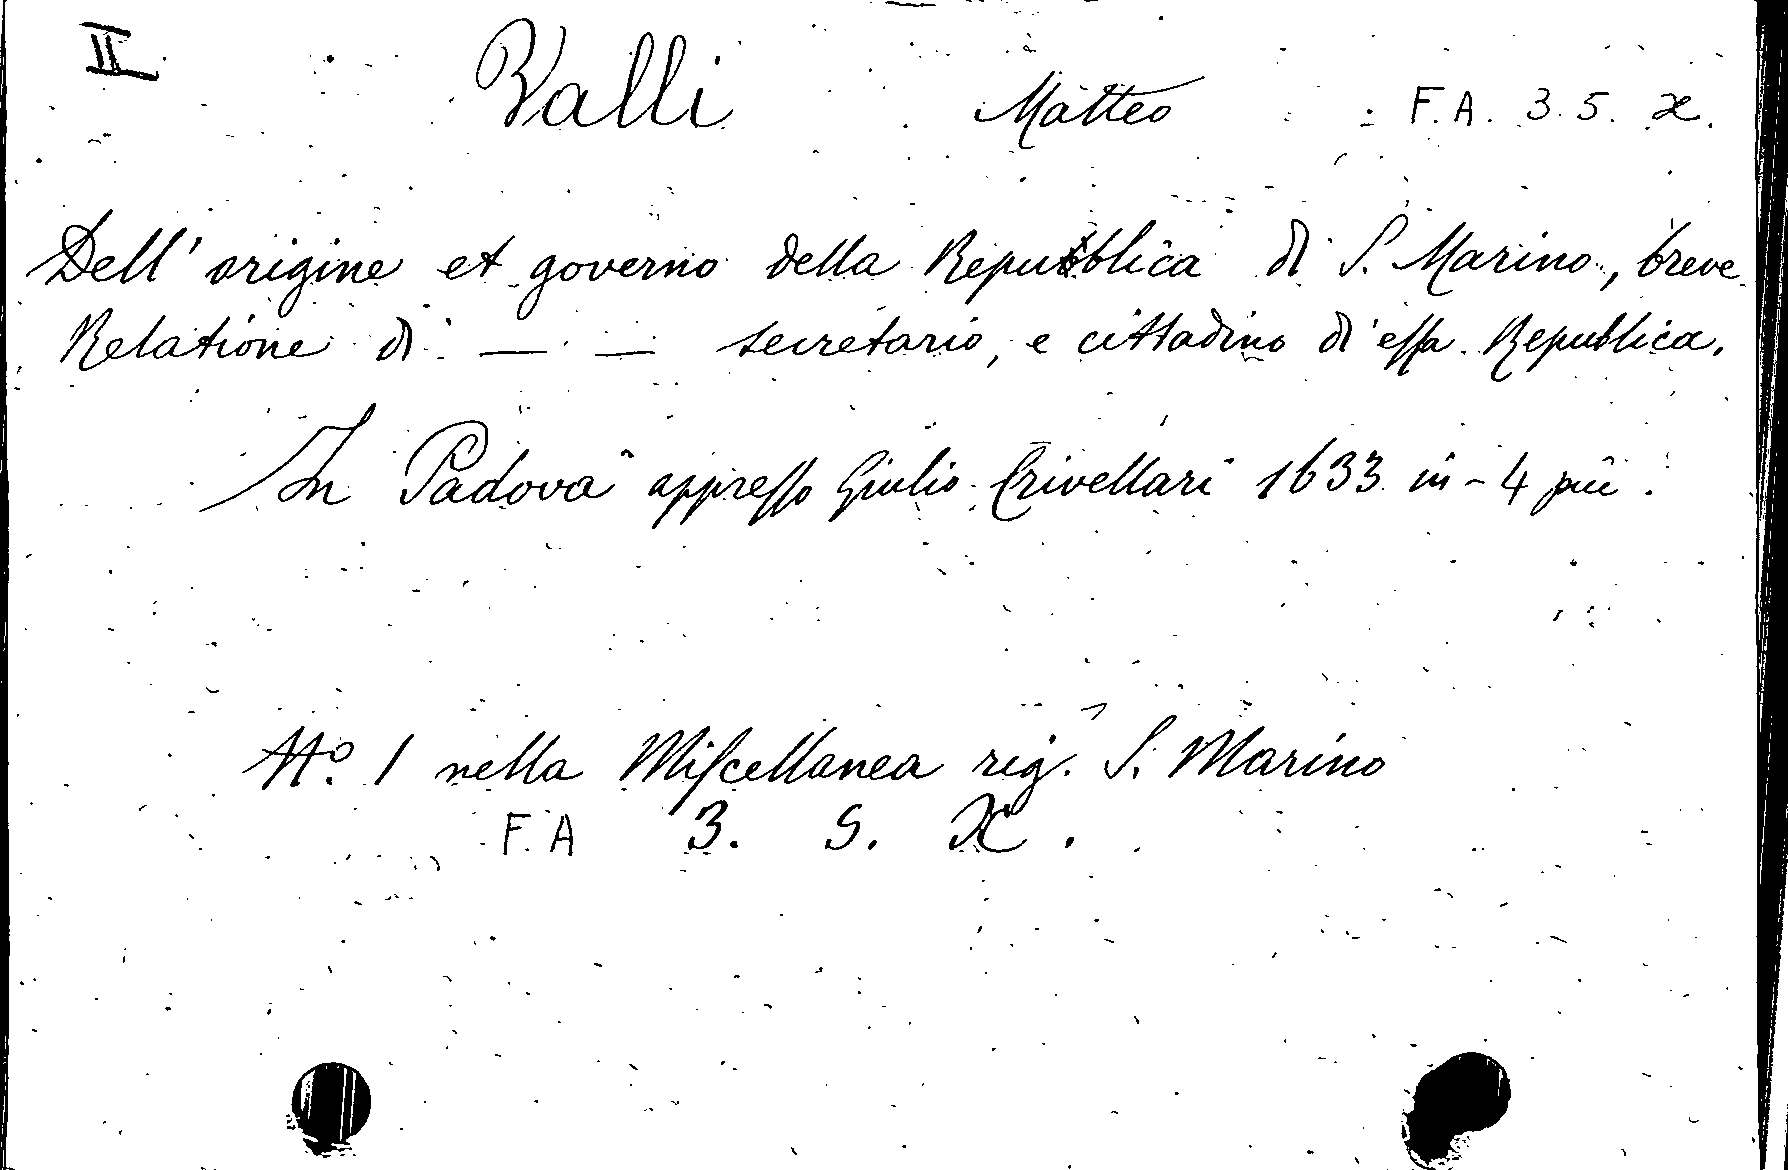 II Valli Matteo F. A. 3. 5. X.
Dell' origine et governo della Republica di S. Marino, breve
Relatione di — — secretario, e cittadino di essa Republica.
In Padova appresso Giulio Crivellari 1633 in-4 piċ.
Nº. 1 nella Miscellanea rig. S. Marino
F. A 3. 5. X.